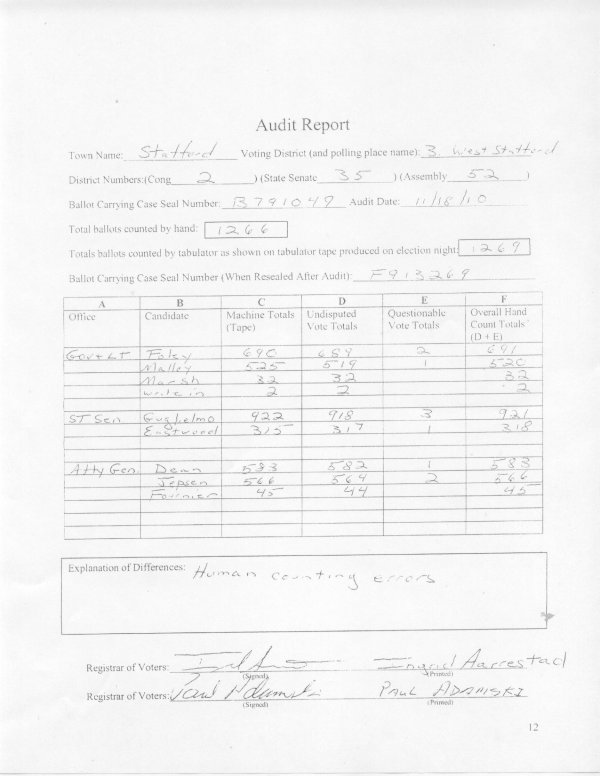 Audit Report
Town Name: Stafford Voting District (and polling place name): 3. West Stafford
District Numbers:(Cong 2 ) (State Senate 35 ) (Assembly 52 )
Ballot Carrying Case Seal Number: B791049 Audit Date: 11/18/10
Total ballots counted by hand: 1266
Totals ballots counted by tabulator as shown on tabulator tape produced on election night: 1269
Ballot Carrying Case Seal Number (When Resealed After Audit): F913269
A B C D E F
Office Candidate Machine Totals (Tape) Undisputed Vote Totals Questionable Vote Totals Overall Hand Count Totals (D + E)
Gov + LT Foley 690 689 2 691
Malloy 525 519 1 520
Marsh 32 32 32
write in 2 2 2
ST Sen. Guglielmo 922 918 3 921
Eastwood 315 317 1 318
Atty Gen. Dean 583 582 1 583
Jepsen 566 564 2 566
Fournier 45 44 45
Explanation of Differences: Human counting errors
Registrar of Voters: Ingrid Aarrestad
(Signed) (Printed)
Registrar of Voters: Paul Adamski PAUL ADAMSKI
(Signed) (Printed)
12